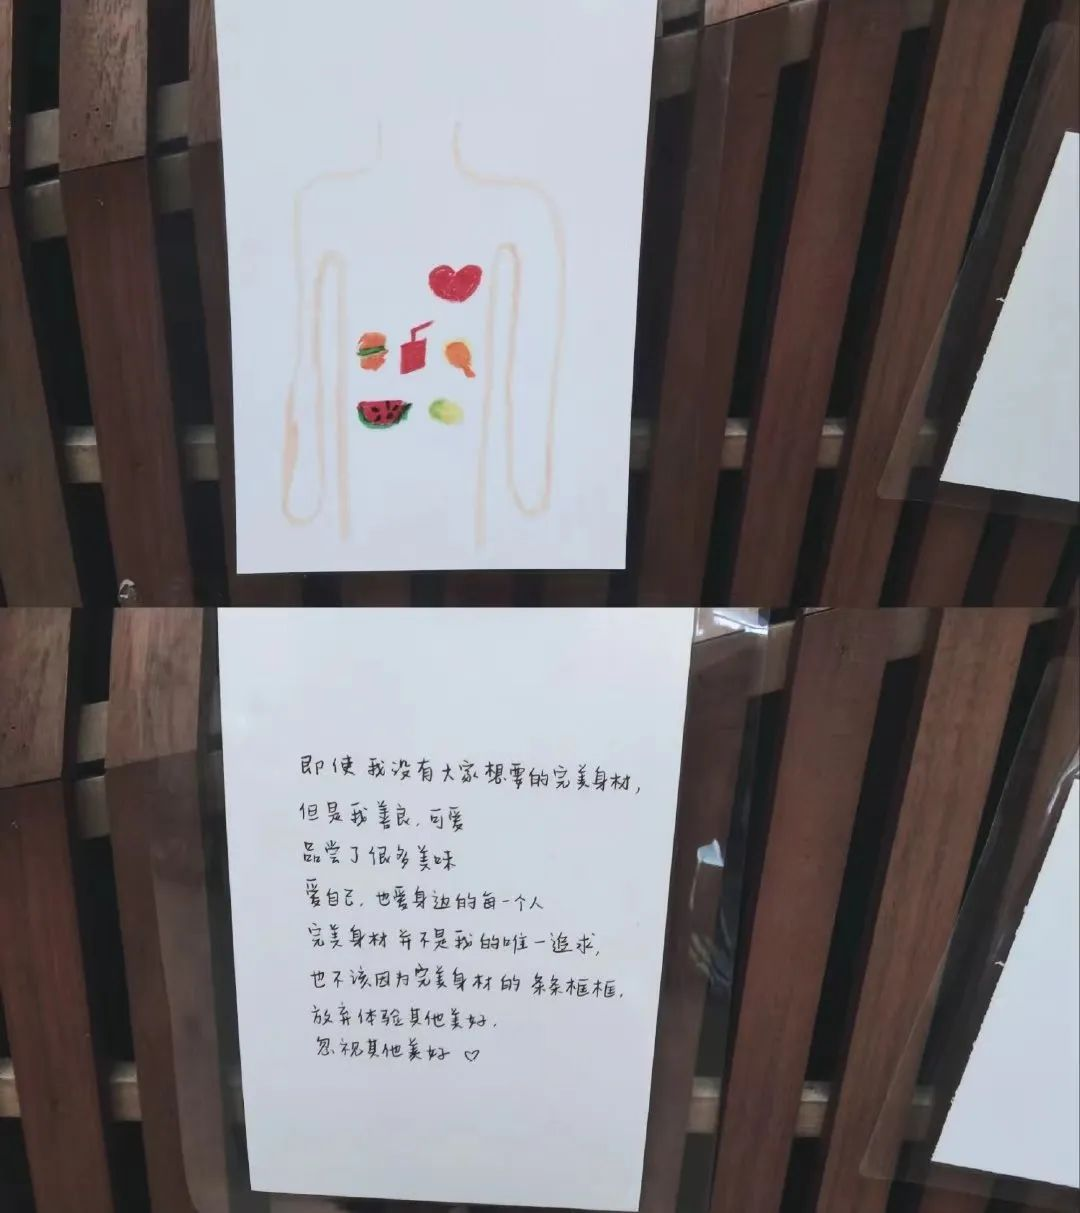 即使我没有大家想要的完美身材,
但是我善良,可爱
品尝了很多美味
爱自己,也爱身边的每一个人
完美身材并不是我的唯一追求,
也不该因为完美身材的条条框框,
放弃体验其他美好,
忽视其他美好♡